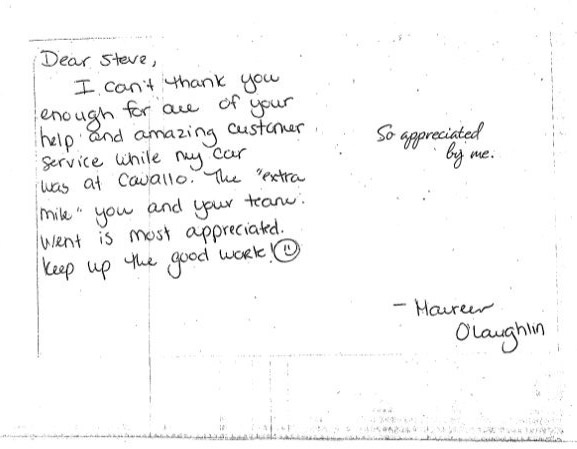 Dear Steve,
I can't thank you
enough for all of your
help and amazing customer
service while my car
was at Cavallo. The "extra
mile" you and your team
went is most appreciated.
Keep up the good work!
So appreciated
by me.
- Maureen
O'Laughlin